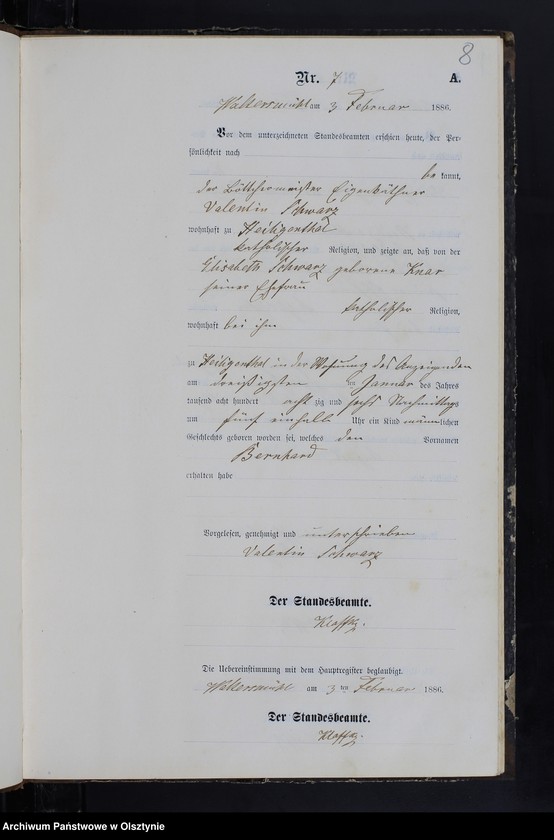 8
Nr. 7 A.
Waltersmühl am 3 Februar 1886.
Vor dem unterzeichneten Standesbeamten erschien heute, der Per-
sönlichkeit nach
be kannt,
der Böttchermeister Eigenkäthner
Valentin Schwarz
wohnhaft zu Heiligenthal
katholischer Religion, und zeigte an, daß von der
Elisabeth Schwarz geborene Knar
seiner Ehefrau
katholischer Religion,
wohnhaft bei ihm
zu Heiligenthal in der Wohnung des Anzeigenden
am dreißigsten ten Januar des Jahres
tausend acht hundert acht zig und sechs Nachmittags
um fünf einhalb Uhr ein Kind männlichen
Geschlechts geboren worden sei, welches den Vornamen
Bernhard
erhalten habe
Vorgelesen, genehmigt und unterschrieben
Valentin Schwarz
Der Standesbeamte.
Klaffki.
Die Uebereinstimmung mit dem Hauptregister beglaubigt.
Waltersmühl am 3 ten Februar 1886.
Der Standesbeamte.
Klaffki.
Archiwum Państwowe w Olsztynie